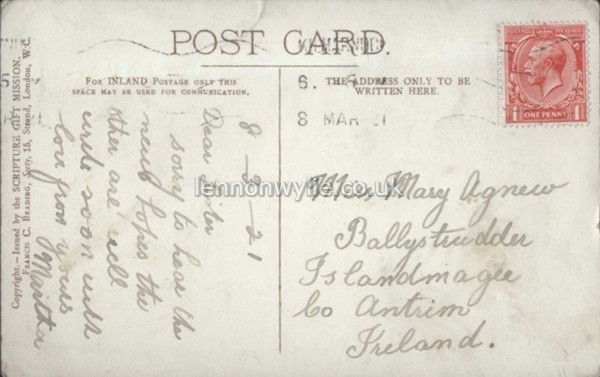 POST CARD.
FOR INLAND POSTAGE ONLY THIS
SPACE MAY BE USED FOR COMMUNICATION.
THE ADDRESS ONLY TO BE
WRITTEN HERE.
8 MAR 21
ONE PENNY
Copyright.—Issued by the SCRIPTURE GIFT MISSION,
FRANCIS C. BRADING, Secy, 15, Strand, London, W.C.
8-3-21
Dear Sister
sorry to hear the
news hopes the
other are well
write soon with
love from yours
Martha
lennonwylie.co.uk
Mrs. Mary Agnew
Ballystrudder
Islandmagee
Co Antrim
Ireland.